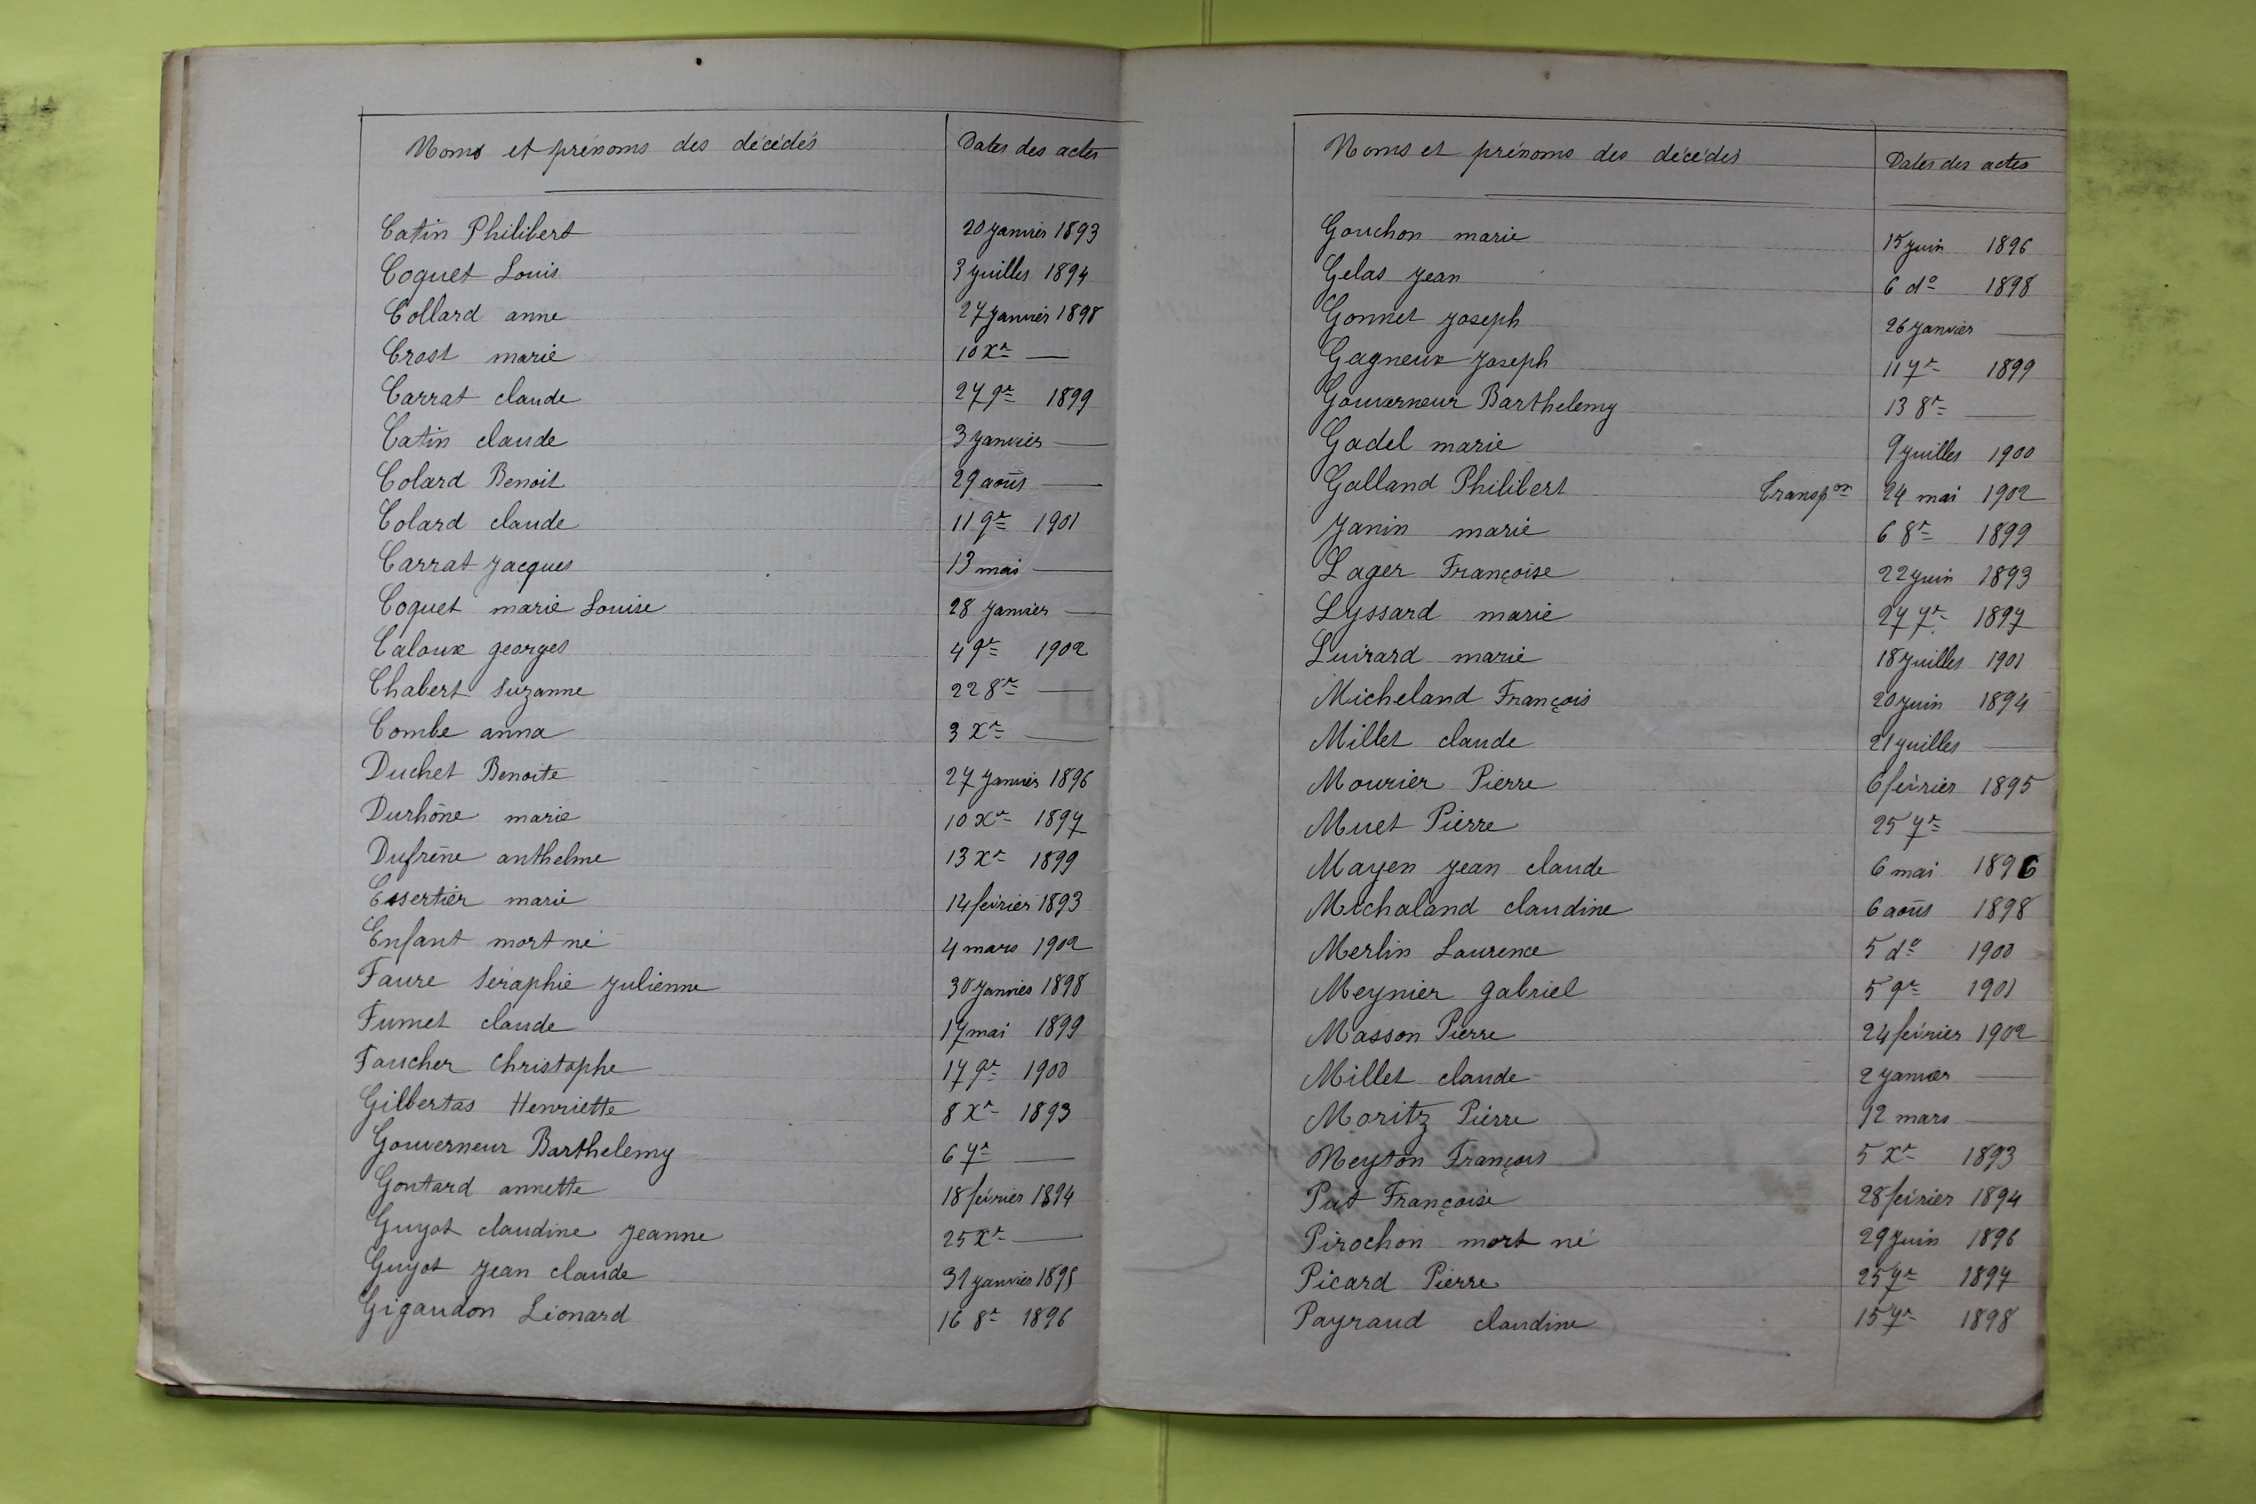 Noms et prénoms des décédés Dates des actes
Catin Philibert 20 janvier 1893
Coquet Louis 3 juillet 1894
Collard anne 27 janvier 1898
Crost marie 10 Xre —
Carrat claude 27 9re 1899
Catin claude 3 janvier —
Colard Benoit 29 août —
Colard claude 11 9re 1901
Carrat jacques 13 mai —
Coquet marie Louise 28 janvier —
Caloux georges 4 9re 1902
Chabert Suzanne 22 8re —
Combe anna 3 Xre —
Duchet Benoite 27 janvier 1896
Durhône marie 10 Xre 1897
Dufrène anthelme 13 Xre 1899
Essertier marie 14 février 1893
Enfant mort né 4 mars 1902
Faure Séraphie julienne 30 janvier 1898
Fumet claude 17 mai 1899
Faucher Christophe 17 9re 1900
Gilbertas Henriette 8 Xre 1893
Gouverneur Barthelemy 6 7re —
Gontard annette 18 février 1894
Guyot claudine jeanne 25 Xre —
Guyot jean claude 31 janvier 1895
Gigaudon Léonard 16 8re 1896
Noms et prénoms des décédés Dates des actes
Gouchon marie 15 juin 1896
Gelas jean 6 do 1898
Gonnet joseph 26 janvier —
Gagneux joseph 11 7re 1899
Gouverneur Barthelemy 13 8re —
Gadel marie 9 juillet 1900
Galland Philibert Transpon 24 mai 1902
Janin marie 6 8re 1899
Lager Françoise 22 juin 1893
Lyssard marie 27 7re 1897
Luirard marie 18 juillet 1901
Micheland François 20 juin 1894
Millet claude 21 juillet —
Mourier Pierre 6 février 1895
Muet Pierre 25 7re —
Mayen jean claude 6 mai 1896
Michaland claudine 6 août 1898
Merlin Laurence 5 do 1900
Meynier gabriel 5 9re 1901
Masson Pierre 24 février 1902
Millet claude 2 janvier —
Moritz Pierre 12 mars —
Neyton François 5 Xre 1893
Put Françoise 28 février 1894
Pirochon mort né 29 juin 1896
Picard Pierre 25 7re 1897
Payraud claudine 15 7re 1898